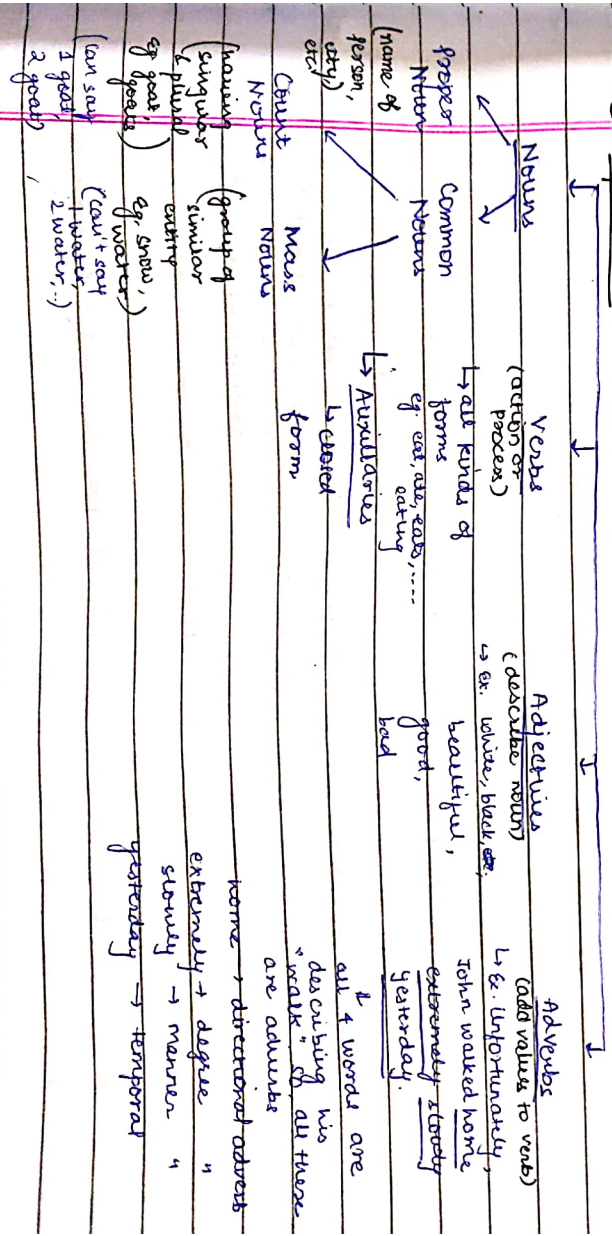 Nouns
Proper
Noun
(name of
person,
city,)
etc
Common
Nouns
Count
Nouns
(having
singular
& plural
eg goat,
goats)
(can say
1 goat,
2 goat)
,
Mass
Nouns
(group of
similar
entity
eg, snow,
water)
(can't say
1 water,
2 water,..)
Verbs
(action or
process)
↳ all kinds of
forms
eg. eat, ate, eats,....
eating
↳ Auxillaries
↳ closed
form
Adjectives
(describe noun)
↳ ex. white, black,
beautiful,
good,
bad
Adverbs
(add values to verb)
↳ Ex. Unfortunately,
John walked home
extremely slowly
yesterday.
all 4 words are
describing his
"walk" so, all these
are adverbs
home → directional adverb
extremely → degree "
slowly → manner "
yesterday → temporal